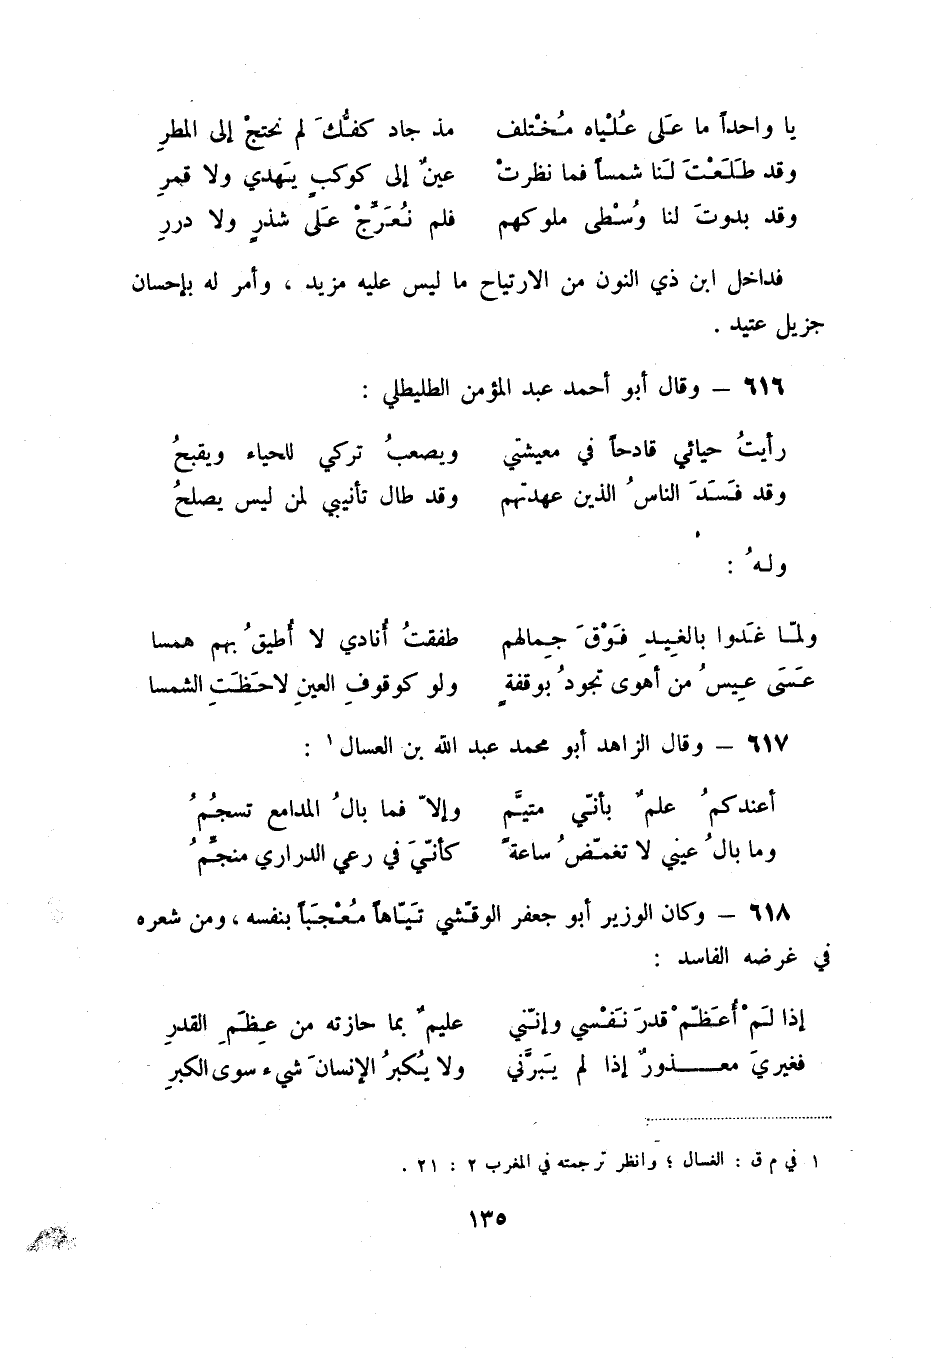 يا واحداً ما عَلى عُلْياه مُخْتلف مذ جاد كفُّكَ لم نحتجْ إلى المطرِ
وقد طَلَعْتَ لَنا شمساً فما نظرتْ عينٌ إلى كوكبٍ يَهدي ولا قمرِ
وقد بدوتَ لنا وُسْطى ملوكهم فلم نُعَرِّجْ عَلى شذرٍ ولا دررِ
فداخل ابن ذي النون من الارتياح ما ليس عليه مزيد ، وأمر له بإحسان
جزيل عتيد .
٦١٦ – وقال أبو أحمد عبد المؤمن الطليطلي :
رأيتُ حيائي قادحاً في معيشتي ويصعبُ تركي للحياء ويقبحُ
وقد فَسَدَ الناسُ الذين عهدتهم وقد طال تأنيبي لمن ليس يصلحُ
ولهُ :
ولمّا غَدوا بالغِيدِ فَوْقَ جِمالهم طفقتُ أُنادي لا أُطيقُ بهم همسا
عَسَى عِيسُ من أهوى تجودُ بوقفةٍ ولو كوقوفِ العينِ لاحَظَتِ الشمسا
٦١٧ – وقال الزاهد أبو محمد عبد الله بن العسال ١ :
أعندكمُ علمٌ بأنّي متيَّم وإلاّ فما بالُ المدامع تسجُمُ
وما بالُ عيني لا تغمّضُ ساعةً كأنّيَ في رعي الدراري منجِّمُ
٦١٨ – وكان الوزير أبو جعفر الوقّشي تَيّاهاً مُعْجَباً بنفسه ، ومن شعره
في غرضه الفاسد :
إذا لَمْ أُعَظّمْ قدرَ نَفْسي وإنّني عليمٌ بما حازته من عِظَمِ القدرِ
فغيريَ معــذورٌ إذا لم يَبَرَّني ولا يُكبرُ الإنسانَ شيء سوى الكبرِ
١ في م ق : الغسال ؛ وانظر ترجمته في المغرب ٢ : ٢١ .
١٣٥